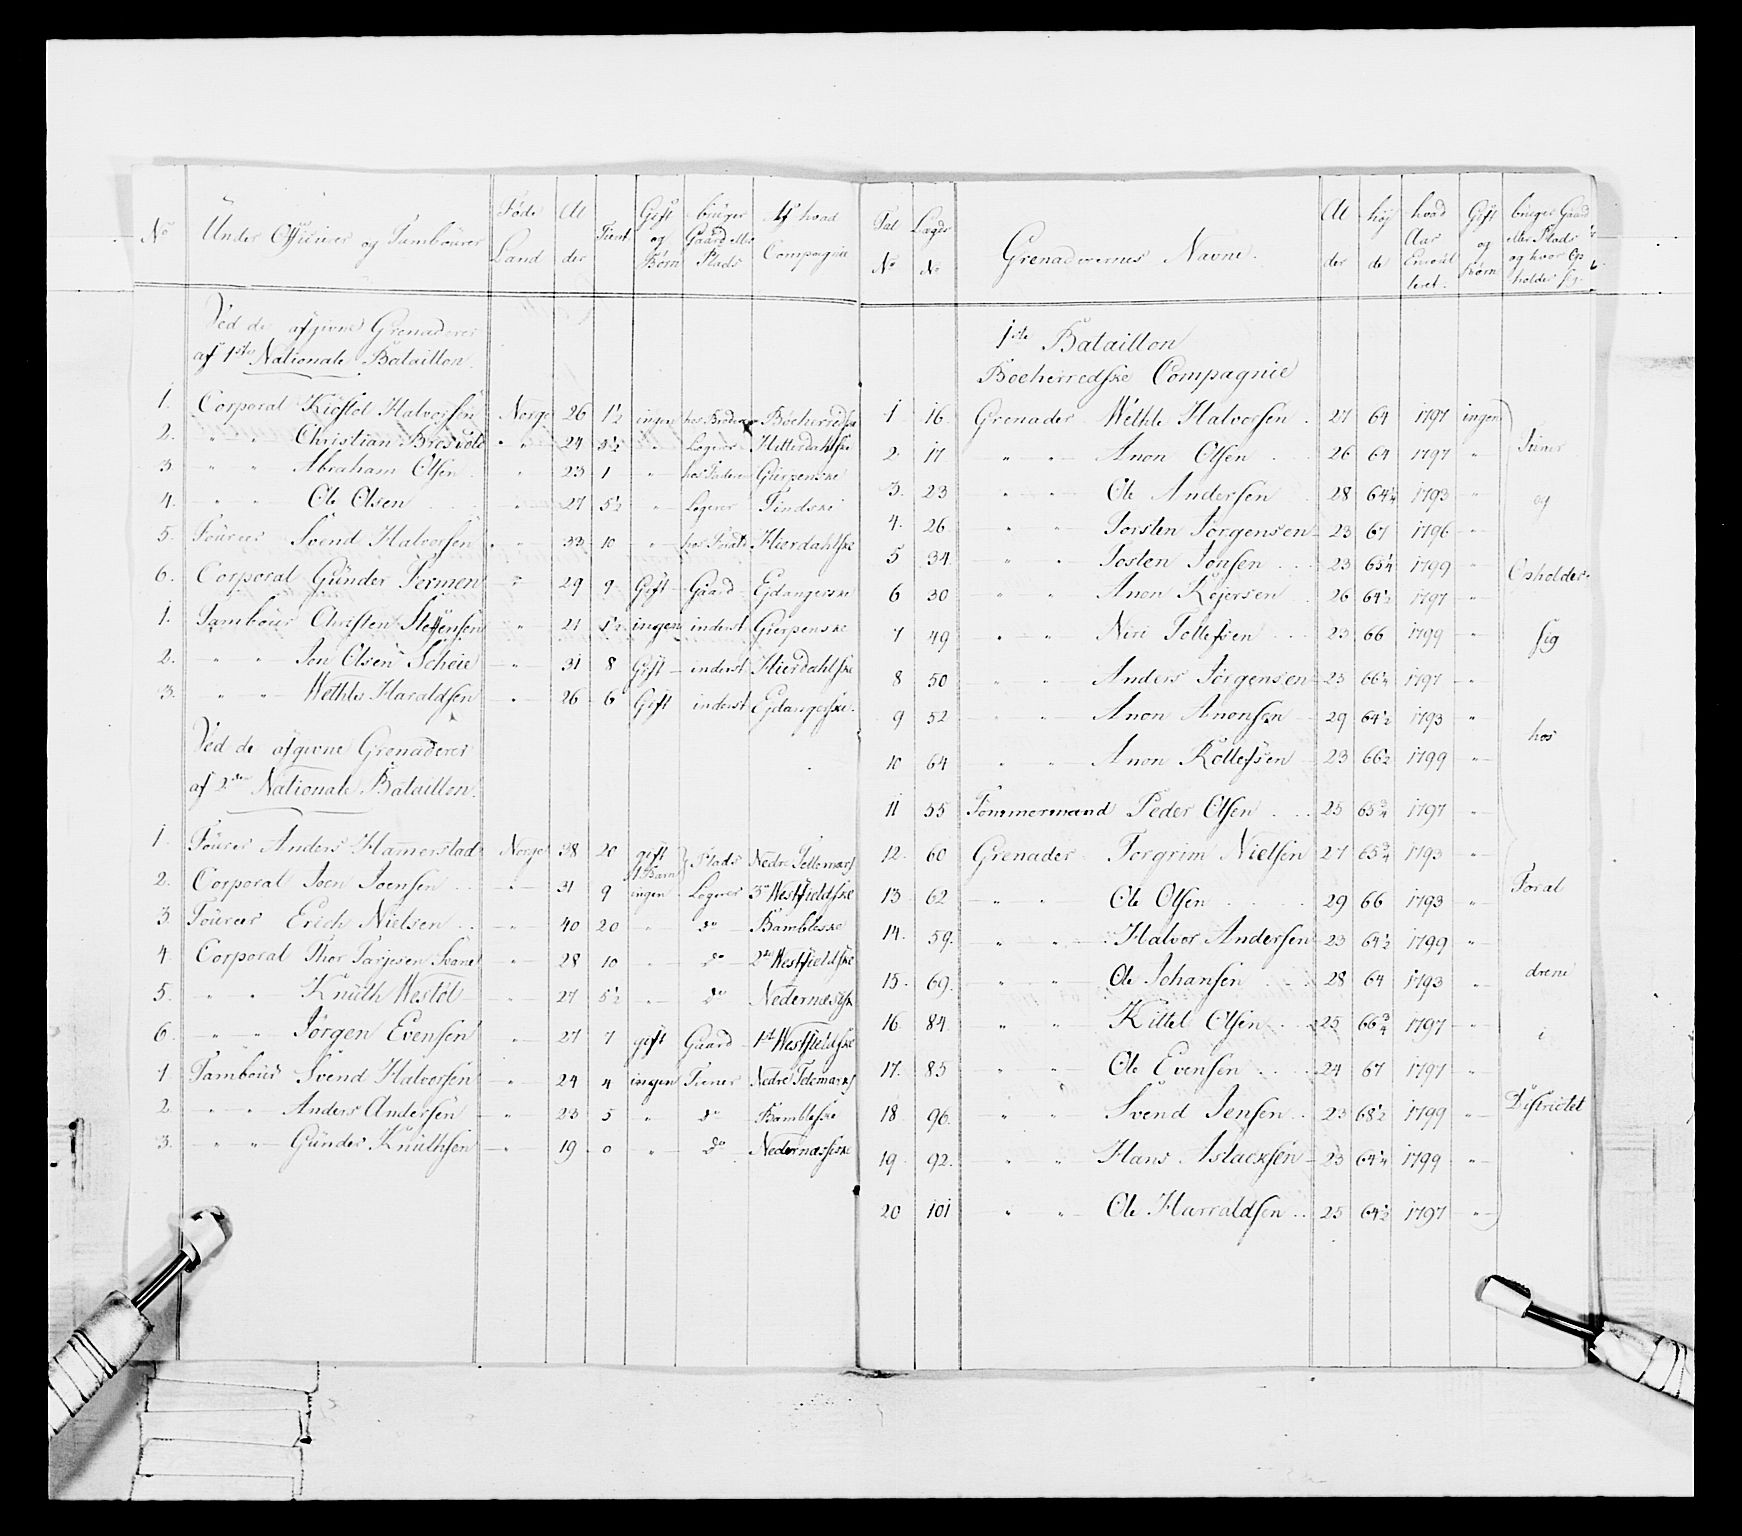 No Under Officirer og Tambourer Føde Land Al der Tient Gift og Børn bruger Gaard eller Plads Af hvad Compagnie
Ved de afgivne Grenaderer
af 1ste Nationale Bataillon.
1. Corporal Kiøstol Halvorsen Norge 26 1½ ingen hos Broder Bøeherredske
2. " " Christian " 24 5½ " Logerer Hitterdahlske
3 " " Abraham Olsen " 23 1 " hos Fader Gierpenske
4. " " Ole Olsen " 27 5½ " Logerer Tindske
5. Fourer Svend Halvorsen " 33 10 " Hierdahlske
6. Corporal Gunder " 29 9 Gift Gaard Ejdangerske
1. Tambour Christen Steffensen " 21 5½ ingen inderst Gierpenske
2. " " Jon Olsen Scheie " 31 8 Gift inderst Hierdahlske
3. " " Wethle Haraldsen " 26 6 Gift inderst Ejdangerske.
Ved de afgivne Grenaderer
af 2den Nationale Bataillon.
1. Fourer Anders Hamerstad Norge 38 20 gift 1 Barn Plads Nedre Tellemarks
2. Corporal Joen Joensen " 31 9 ingen Logerer 3die Westfieldske
3 Fourer Erich Nielsen " 40 20 " do Bambleske
4 Corporal Thor Tarjesen " 28 10 " do 2den Westfieldske
5. " " Knuth Westøl " 27 5½ " do
6. " " Jørgen Evensen " 27 7 gift Gaard 1ste Westfieldske
1 Tambour Svend Halvorsen " 24 4 ingen Tiener Nedre Telemarks
2 " " Anders Andersen " 23 5 " do Bambleske
3. " " Gunder Knuthsen " 19 0 " do Nedernæsiske
Tal No Lægds No Grenaderernes Navne. Al der høj de hvad Aar Enroul leret. Gift og Børn bruger Gaard eller Plads og hvor Op holder sig.
1ste Bataillon
Bøeherredske Compagnie
1 16 Grenader Wethle Halvorsen 27 64 1797 ingen
2. 17 " " Anon Olsen 26 64 1797 "
3. 23 " " Ole Andersen 28 64¼ 1793 "
4. 26 " " Torsten Jørgensen 23 67 1796 "
5 34 " " Josten Jonsen 23 65¼ 1799 "
6 30 " " Anon Rejersen 26 64½ 1797 "
7 49 " " Niri Tollefsen 23 66 1799 "
8 50 " " Anders Jørgensen 23 66¼ 1797 "
9 52 " " Anon Anonsen 29 64½ 1793 "
10 64 " " Anon Rollefsen 23 66½ 1799 "
11 55 Tømmermand Peder Olsen 25 65¾ 1797 "
12. 60 Grenader Torgrim Nielsen 27 65¾ 1793 "
13 62 " " Ole Olsen 29 66 1793 "
14. 59. " " Halvor Andersen 23 64½ 1799 "
15. 69. " " Ole Johansen 28 64 1793 "
16 84. " " Kittel Olsen 25 66¾ 1797 "
17. 85 " " Ole Evensen 24 67 1797 "
18 96. " " Svend Jensen 23 68½ 1799 "
19 92. " " Hans Aslacksen 23 64¼ 1799 "
20 101 " " Ole Harraldsen 25 64½ 1797 "
Tiener
og
Opholder
sig
hos
Foral
drene
i
Districtet